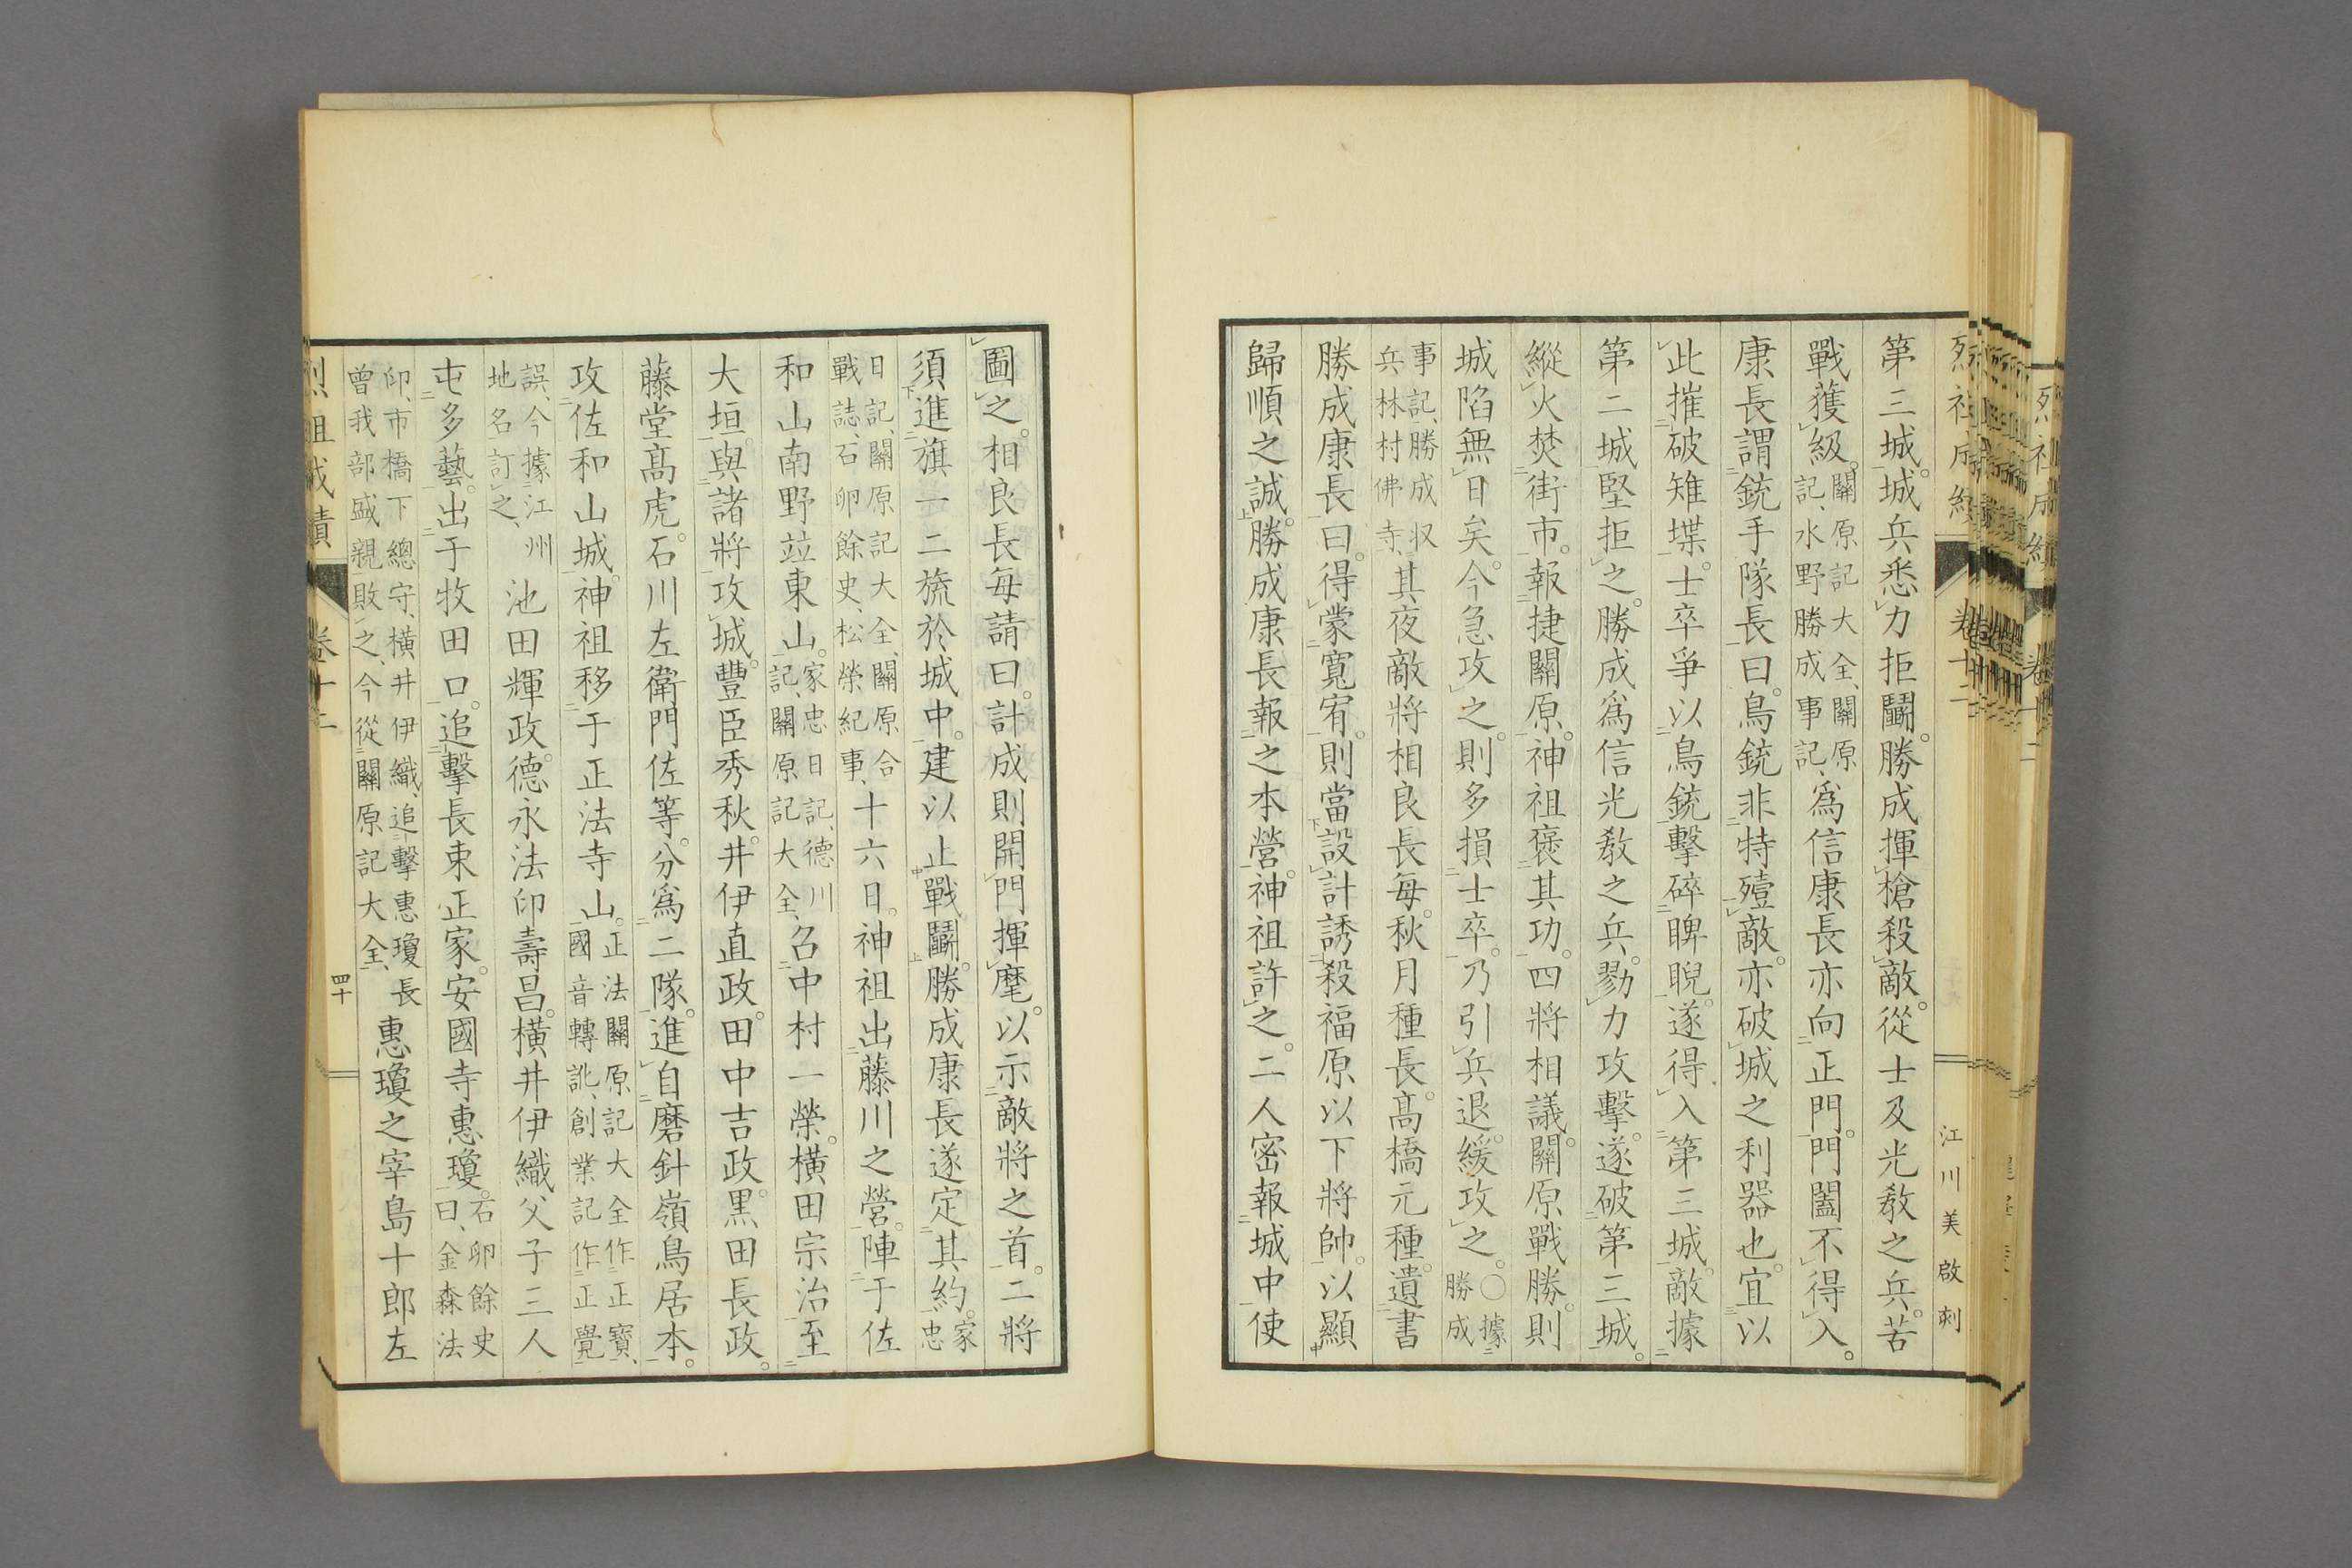 第三城。城兵悉力拒鬭。勝成揮槍殺敵。從士及光教之兵。苦
戰獲級。關原記大全、關原記、水野勝成事記、爲信康長亦向正門。門闔不得入。
康長謂銃手隊長曰。鳥銃非特殪敵。亦破城之利器也。宜以
此摧破雉堞。士卒爭以鳥銃擊碎睥睨。遂得入第三城。敵據
第二城堅拒之。勝成爲信光教之兵。勠力攻擊。遂破第三城。
縱火焚街市。報捷關原。神祖褒其功。四將相議。關原戰勝。則
城陷無日矣。今急攻之。則多損士卒。乃引兵退。緩攻之。○據勝成
事記、勝成収兵林村佛寺、其夜敵將相良長毎。秋月種長。高橋元種。遺書
勝成康長曰。得蒙寬宥。則當設計誘殺福原以下將帥。以顯
歸順之誠。勝成康長報之本營。神祖許之。二人密報城中使
圖之。相良長毎請曰。計成則開門揮麾。以示敵將之首。二將
須進旗一二旒於城中。建以止戰鬭。勝成康長遂定其約。家忠
日記、關原記大全、關原合戰誌、石卵餘史、松榮紀事、十六日。神祖出藤川之營。陣于佐
和山南野竝東山。家忠日記、德川記、關原記大全、召中村一榮。橫田宗治至
大垣。與諸將攻城。豐臣秀秋。井伊直政。田中吉政。黑田長政。
藤堂高虎。石川左衞門佐等。分爲二隊。進自磨針嶺鳥居本。
攻佐和山城。神祖移于正法寺山。正法關原記大全作正寶、國音轉訛、創業記作正覺
誤、今據江州地名訂之、池田輝政。德永法印壽昌。橫井伊織父子三人
屯多藝。出于牧田口。追擊長束正家。安國寺惠瓊。石卵餘史曰、金森法
印、市橋下總守、橫井伊織、追擊惠瓊長曾我部盛親敗之、今從關原記大全、惠瓊之宰島十郎左
烈祖成績
卷十二
四十
江川美啟刺